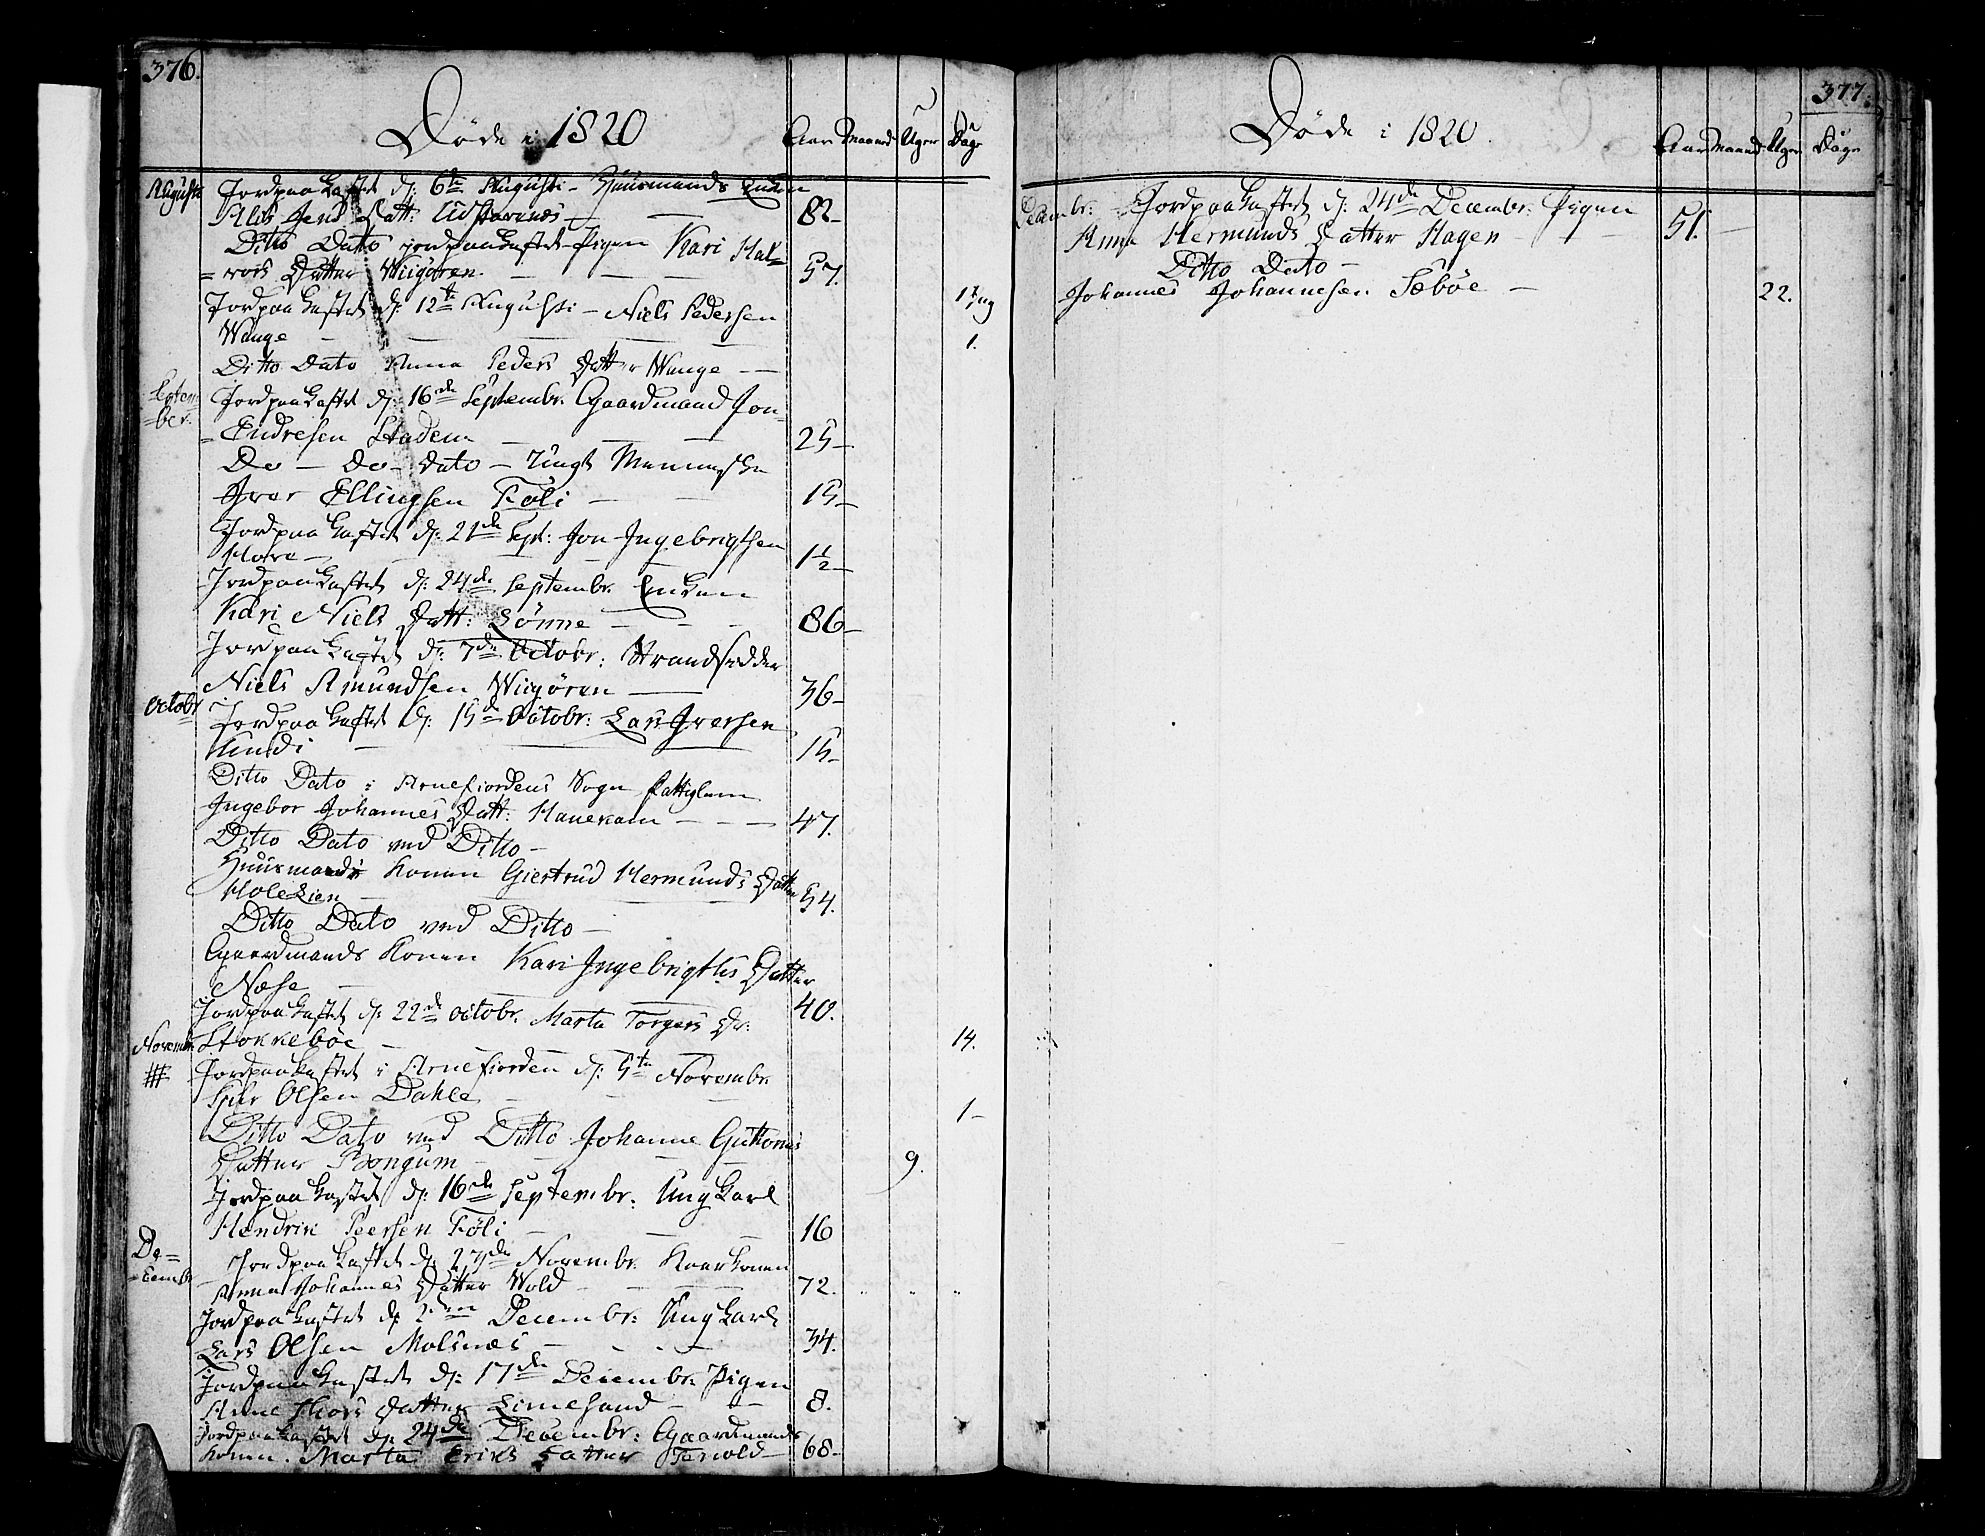 376.
Døde i 1820
Aar Maaned Uger Dage
Augusti Jordpaakastet d: 6te Augusti - Huusmands Enken
Jens Datt: 82-
Ditto Dato jordpaakastet Pigen Kari Hal=
=vors Datter Wiigøren 57.
Jordpaakastet d: 12te Augusti - Niels Pedersen
Wange - 1.
Ditto Dato Anna Peders Datter Wange
Septem
=ber. Jordpaakastet d: 16de Septembr. Gaardmand Jon
=Endresen Stadem 25-
Do - Do - Dato - Ungt Menneske
Iver Ellingsen Føli - 15-
Jordpaakastet d: 21de Sept: Jon Ingebrigtsen
Hove - 1½-
Jordpaakastet d: 24de Septembr. Enken
Kari Niels Datt: Lønne - 86-
Jordpaakastet d: 7de Octobr: Strandsidder
Niels Amundsen Wiigøren 36-
Octobr Jordpaakastet d: 15de Octobr: Lars Iversen
Undi 15-
Ditto Dato i Arnefiordens Sogn Fattiglem
Ingebor Johannes Datt: Hanekam - 47.
Ditto Dato ved Ditto-
Huusmands Konen Giertrud Hermunds Datter
Holelien 54.
Ditto Dato ved Ditto-
Gaardmands Konen Kari Ingebrigts Datter
Næse 40.
Jordpaakastet d: 22de Octobr. Marta Torgers Dr:
Novembr: Stokkebøe - 14.
# Jordpaakastet i Arnefiorden d: 5te Novembr
Olsen Dahle 1-
Ditto Dato ved Ditto Johanne Guttorms
Datter Bongum 9.
Jordpaakastet d: 16de Septembr: Ung Karl
Hendrik Peersen Føli 16
De=
=cembr Jordpaakastet d: 27de Novembr. Kaarkonen
Anna Johannes Datter Wold 72.
Jordpaakastet d: 2den Decembr: Ung Karl
Lars Olsen Molsnæs - 34.
Jordpaakastet d: 17de Decembr. Pigen
Anne Datter Limesand - 8.
Jordpaakastet d: 24de Decembr: Gaardmands
Konen. Marta Eriks Datter 68-
377.
Døde i 1820.
Aar Maaned Uger Dage
Decembr: Jordpaakastet d: 24de Decembr: Pigen
Anna Hermunds Datter Hagen 51.
Ditto Dato-
Johannes Johannesen Sæbøe - 22.